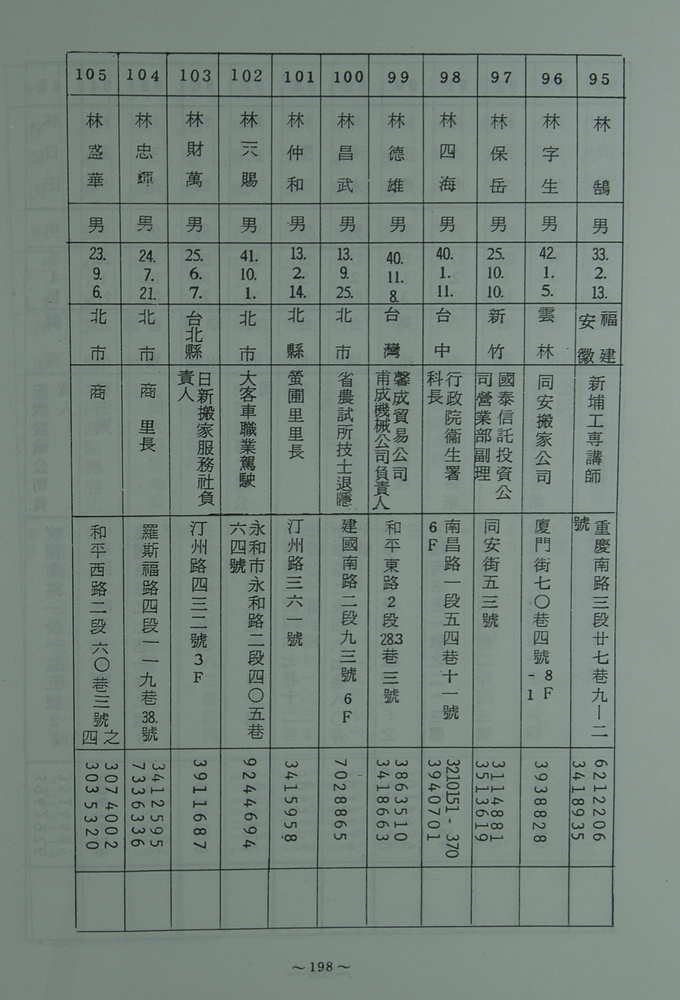 95
林鵠
男
33. 2. 13.
福建
安徽
新埔工専講師
重慶南路三段廿七巷九－二
號
6212206
3418935
96
林字生
男
42. 1. 5.
雲林
同安搬家公司
廈門街七〇巷四號8F
-1
3938828
97
林保岳
男
25. 10. 10.
新竹
國泰信託投資公
司營業部副理
同安街五三號
3114881
3513619
98
林四海
男
40. 1. 11.
台中
行政院衞生署
科長
南昌路一段五四巷十一號
6F
3210151-370
3940701
99
林德雄
男
40. 11. 8.
台灣
馨成貿易公司
甫成機械公司負責人
和平東路2段283巷三號
3863510
3418663
100
林昌武
男
13. 9. 25.
北市
省農試所技士退隱
建國南路二段九三號6F
7028865
101
林仲和
男
13. 2. 14.
北縣
螢圃里里長
汀州路三六一號
3415958
102
林天賜
男
41. 10. 1.
北市
大客車職業駕駛
永和市永和路二段四〇五巷
六四號
9244694
103
林財萬
男
25. 6. 7.
台北縣
日新搬家服務社負
責人
汀州路四三二號3F
3911687
104
林忠輝
男
24. 7. 21.
北市
商 里長
羅斯福路四段一一九巷38.號
3412595
7336336
105
林盛華
男
23. 9. 6.
北市
商
和平西路二段六〇巷三號之
四
3074002
3035320
～198～